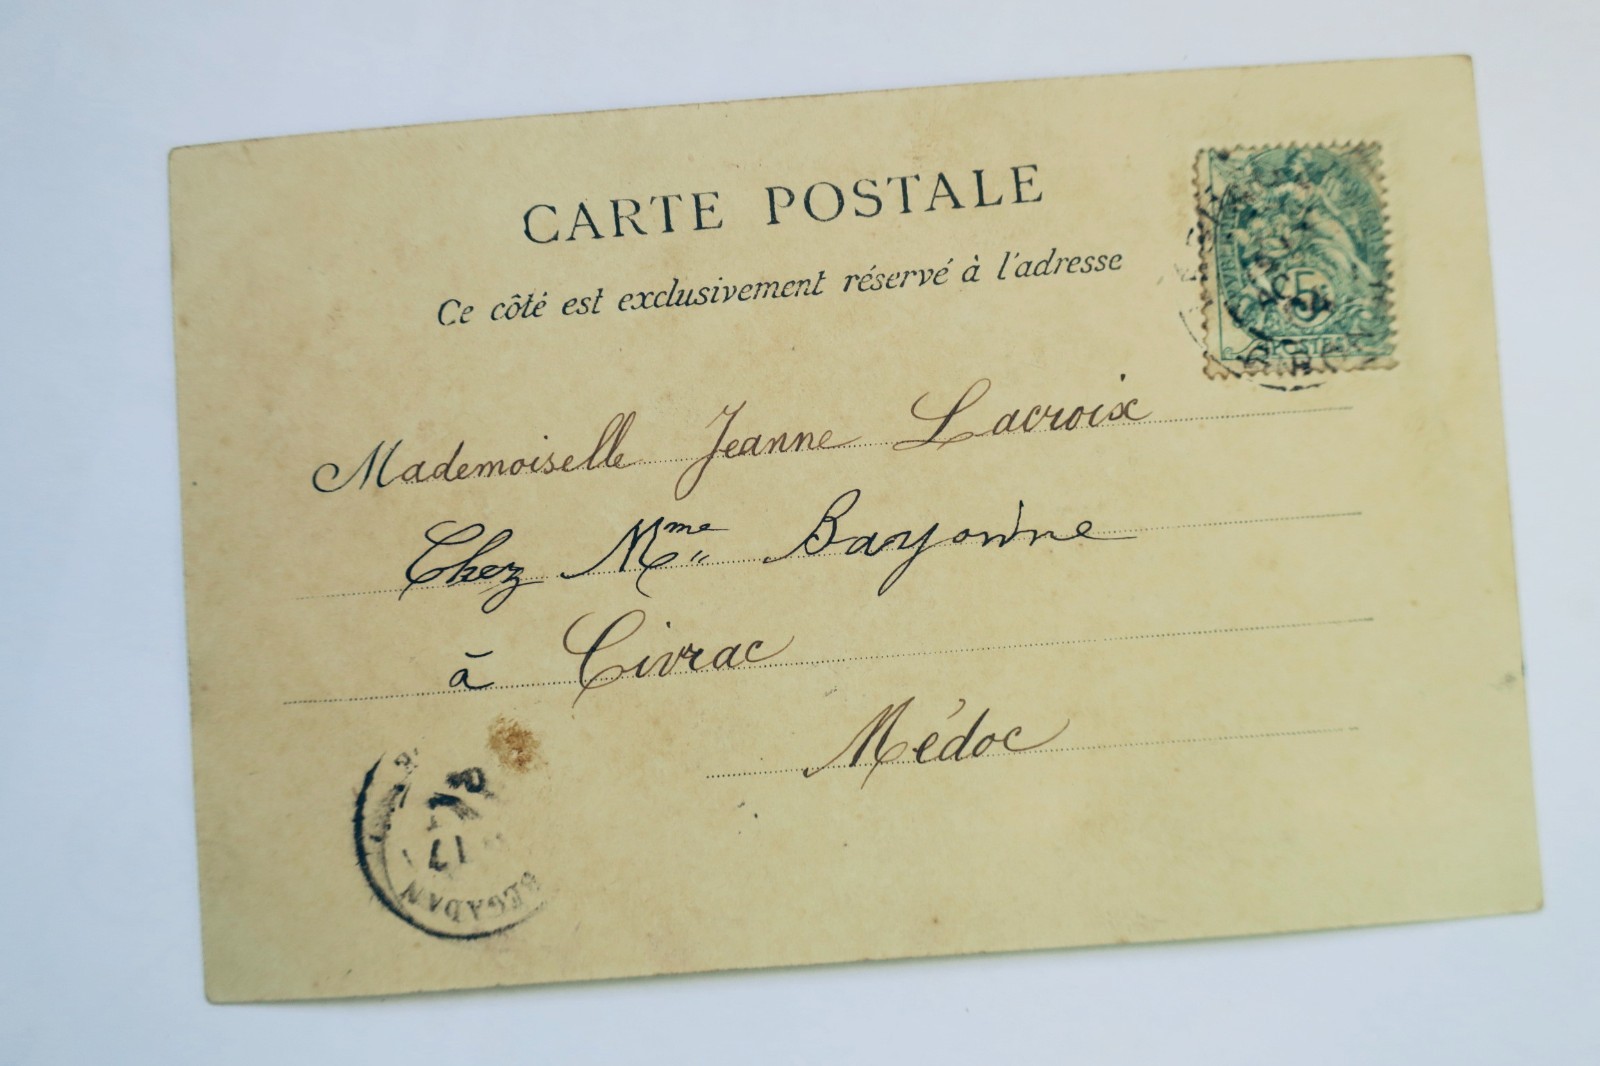 CARTE POSTALE
Ce côté est exclusivement réservé à l'adresse
5
POSTES
Mademoiselle Jeanne Lacroix
Chez Mme Bayonne
à Civrac
Médoc
17
BEGADAN